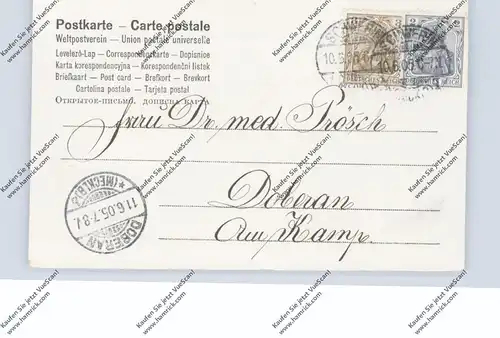 Postkarte – Carte postale
Weltpostverein – Union postale universelle
Levelező-Lap – Correspondenzkarte – Dopisnice
Karta korespondencyjna – Korespondenční lístek
Briefkaart – Post card – Brefkort – Brevkort
Cartolina postale – Tarjeta postal
Открытое письмо, дописна карта
SCHWERIN
SCHWERIN
Frau Dr. med. Prösch
Doberan
Am Kamp.
DOBERAN
11.6.05.7-8V
* (MECKLB.) *
Kaufen Sie jetzt VueScan!
www.hamrick.com